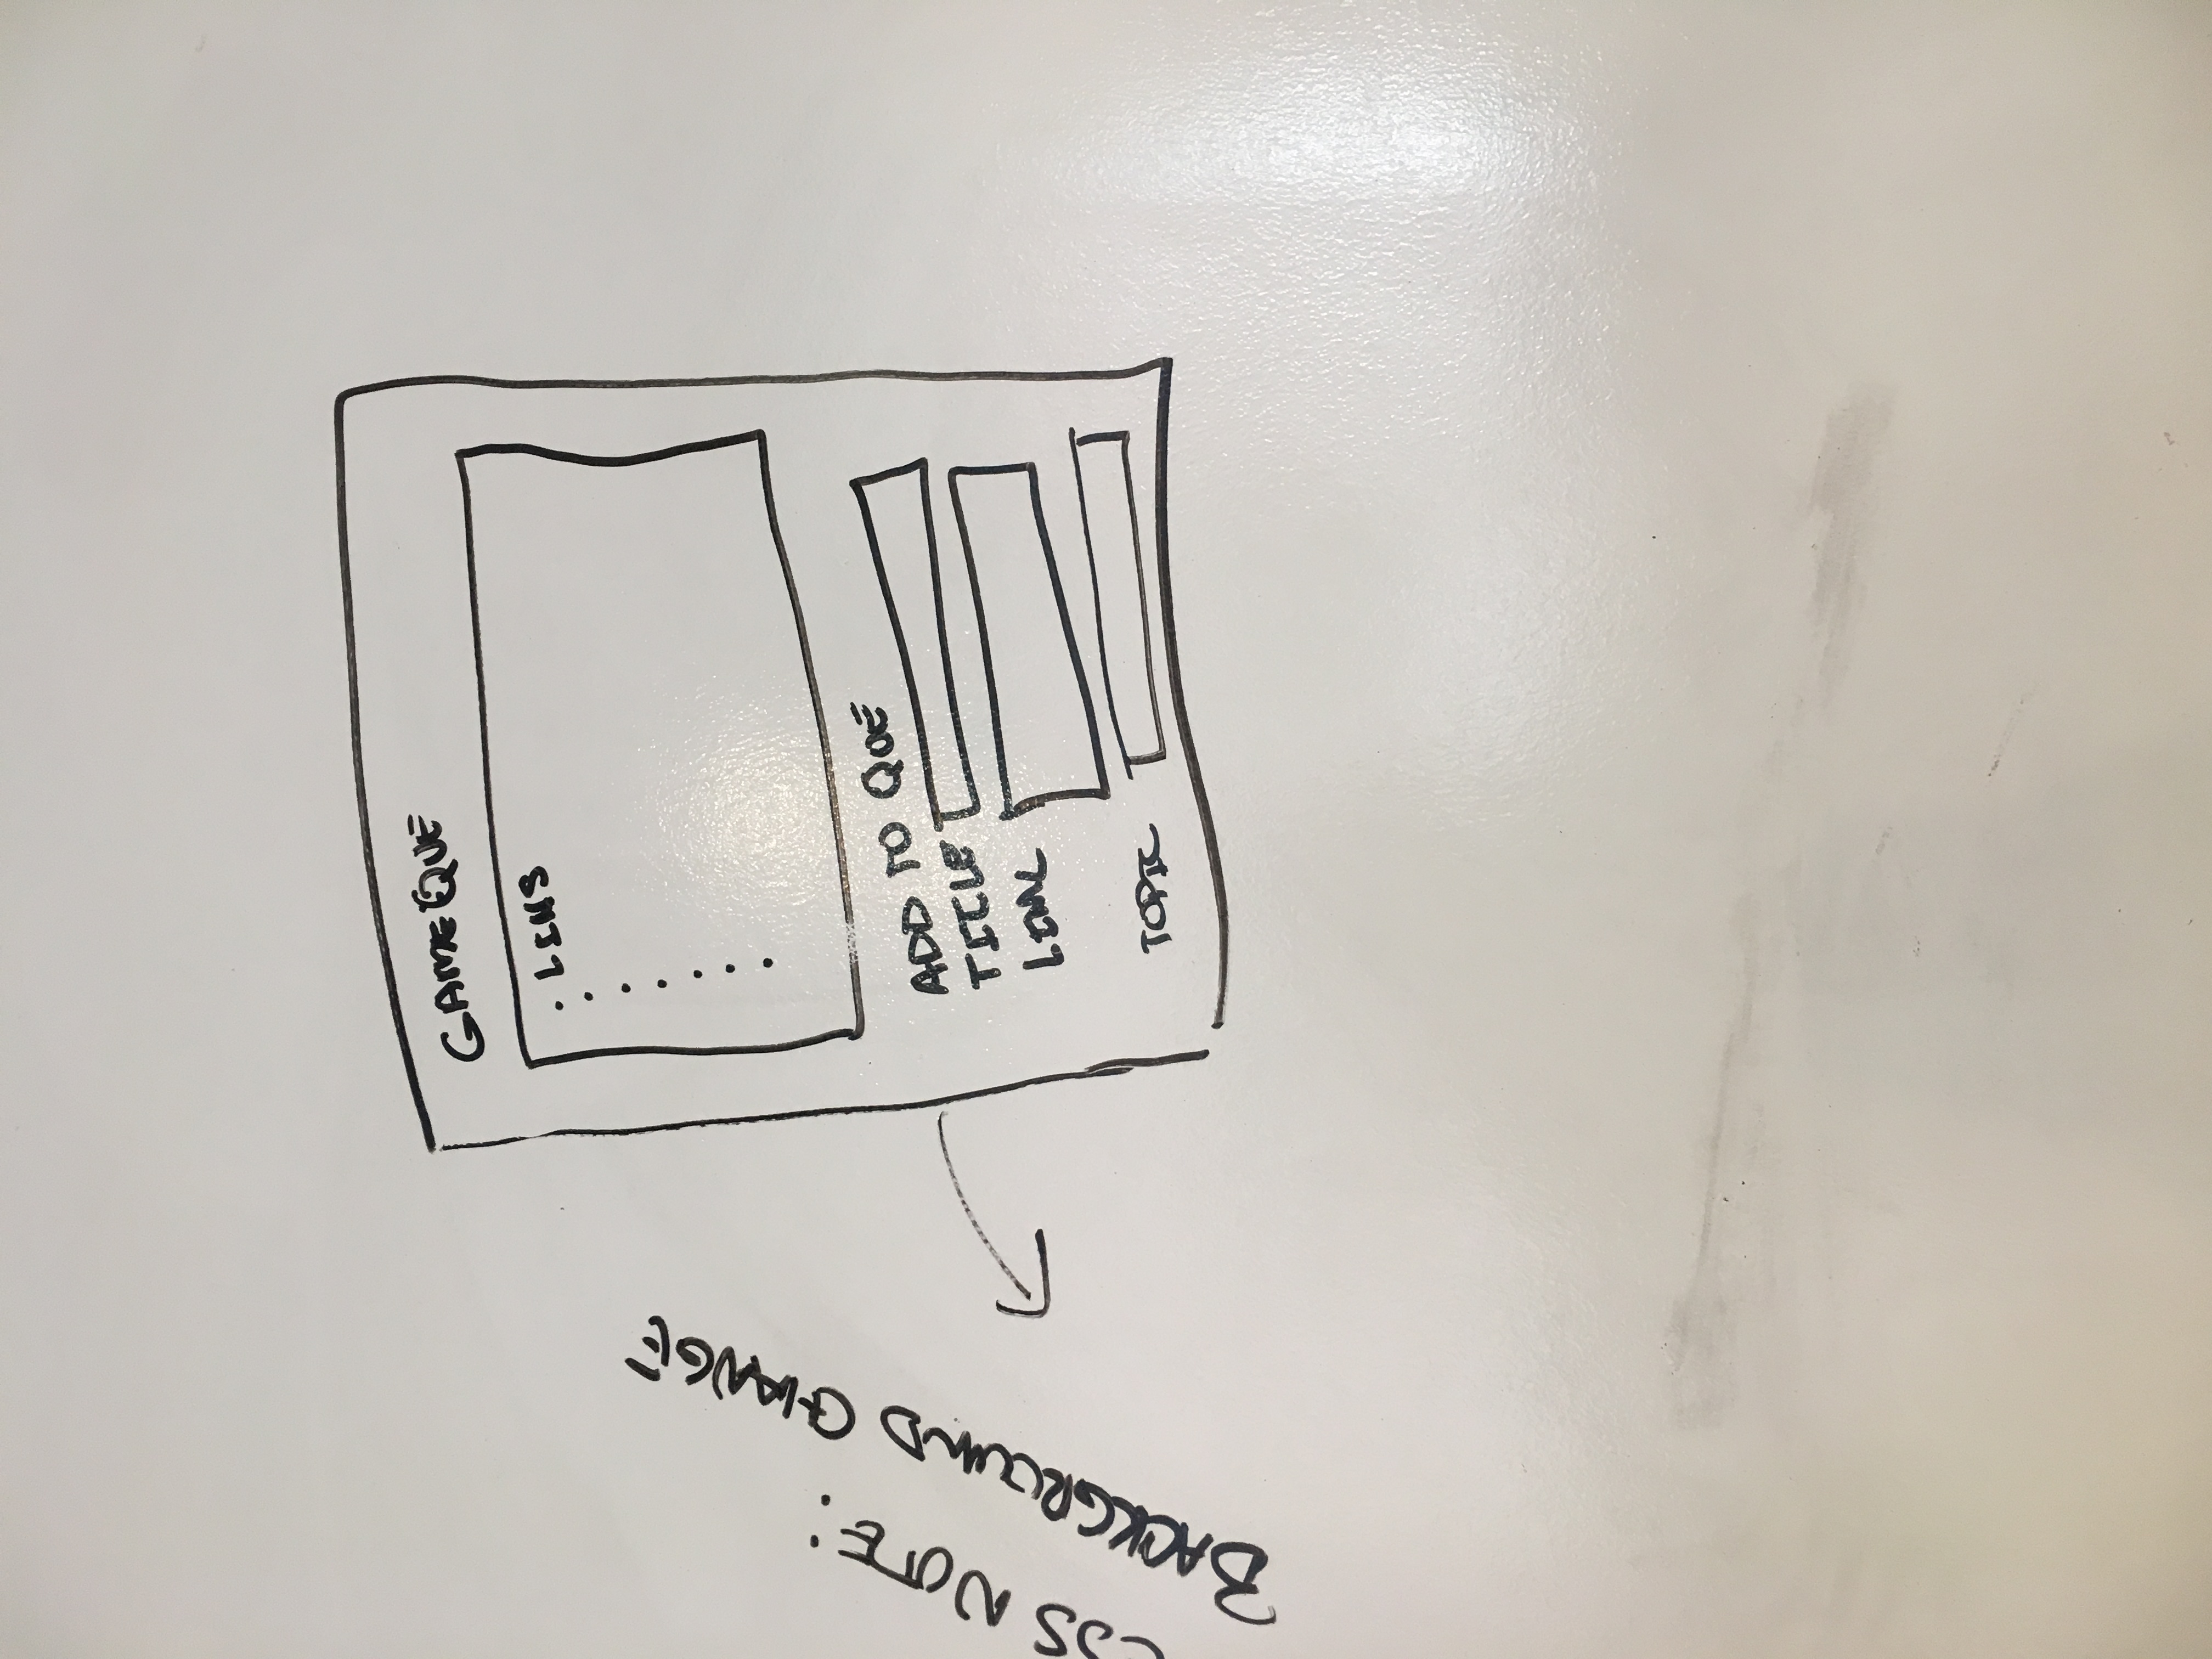 GAMEQUE
· LINS
ADD TO QUE
TITLE
LINK
TOPIC
SS NOTE:
BACKGROUND CHANGE